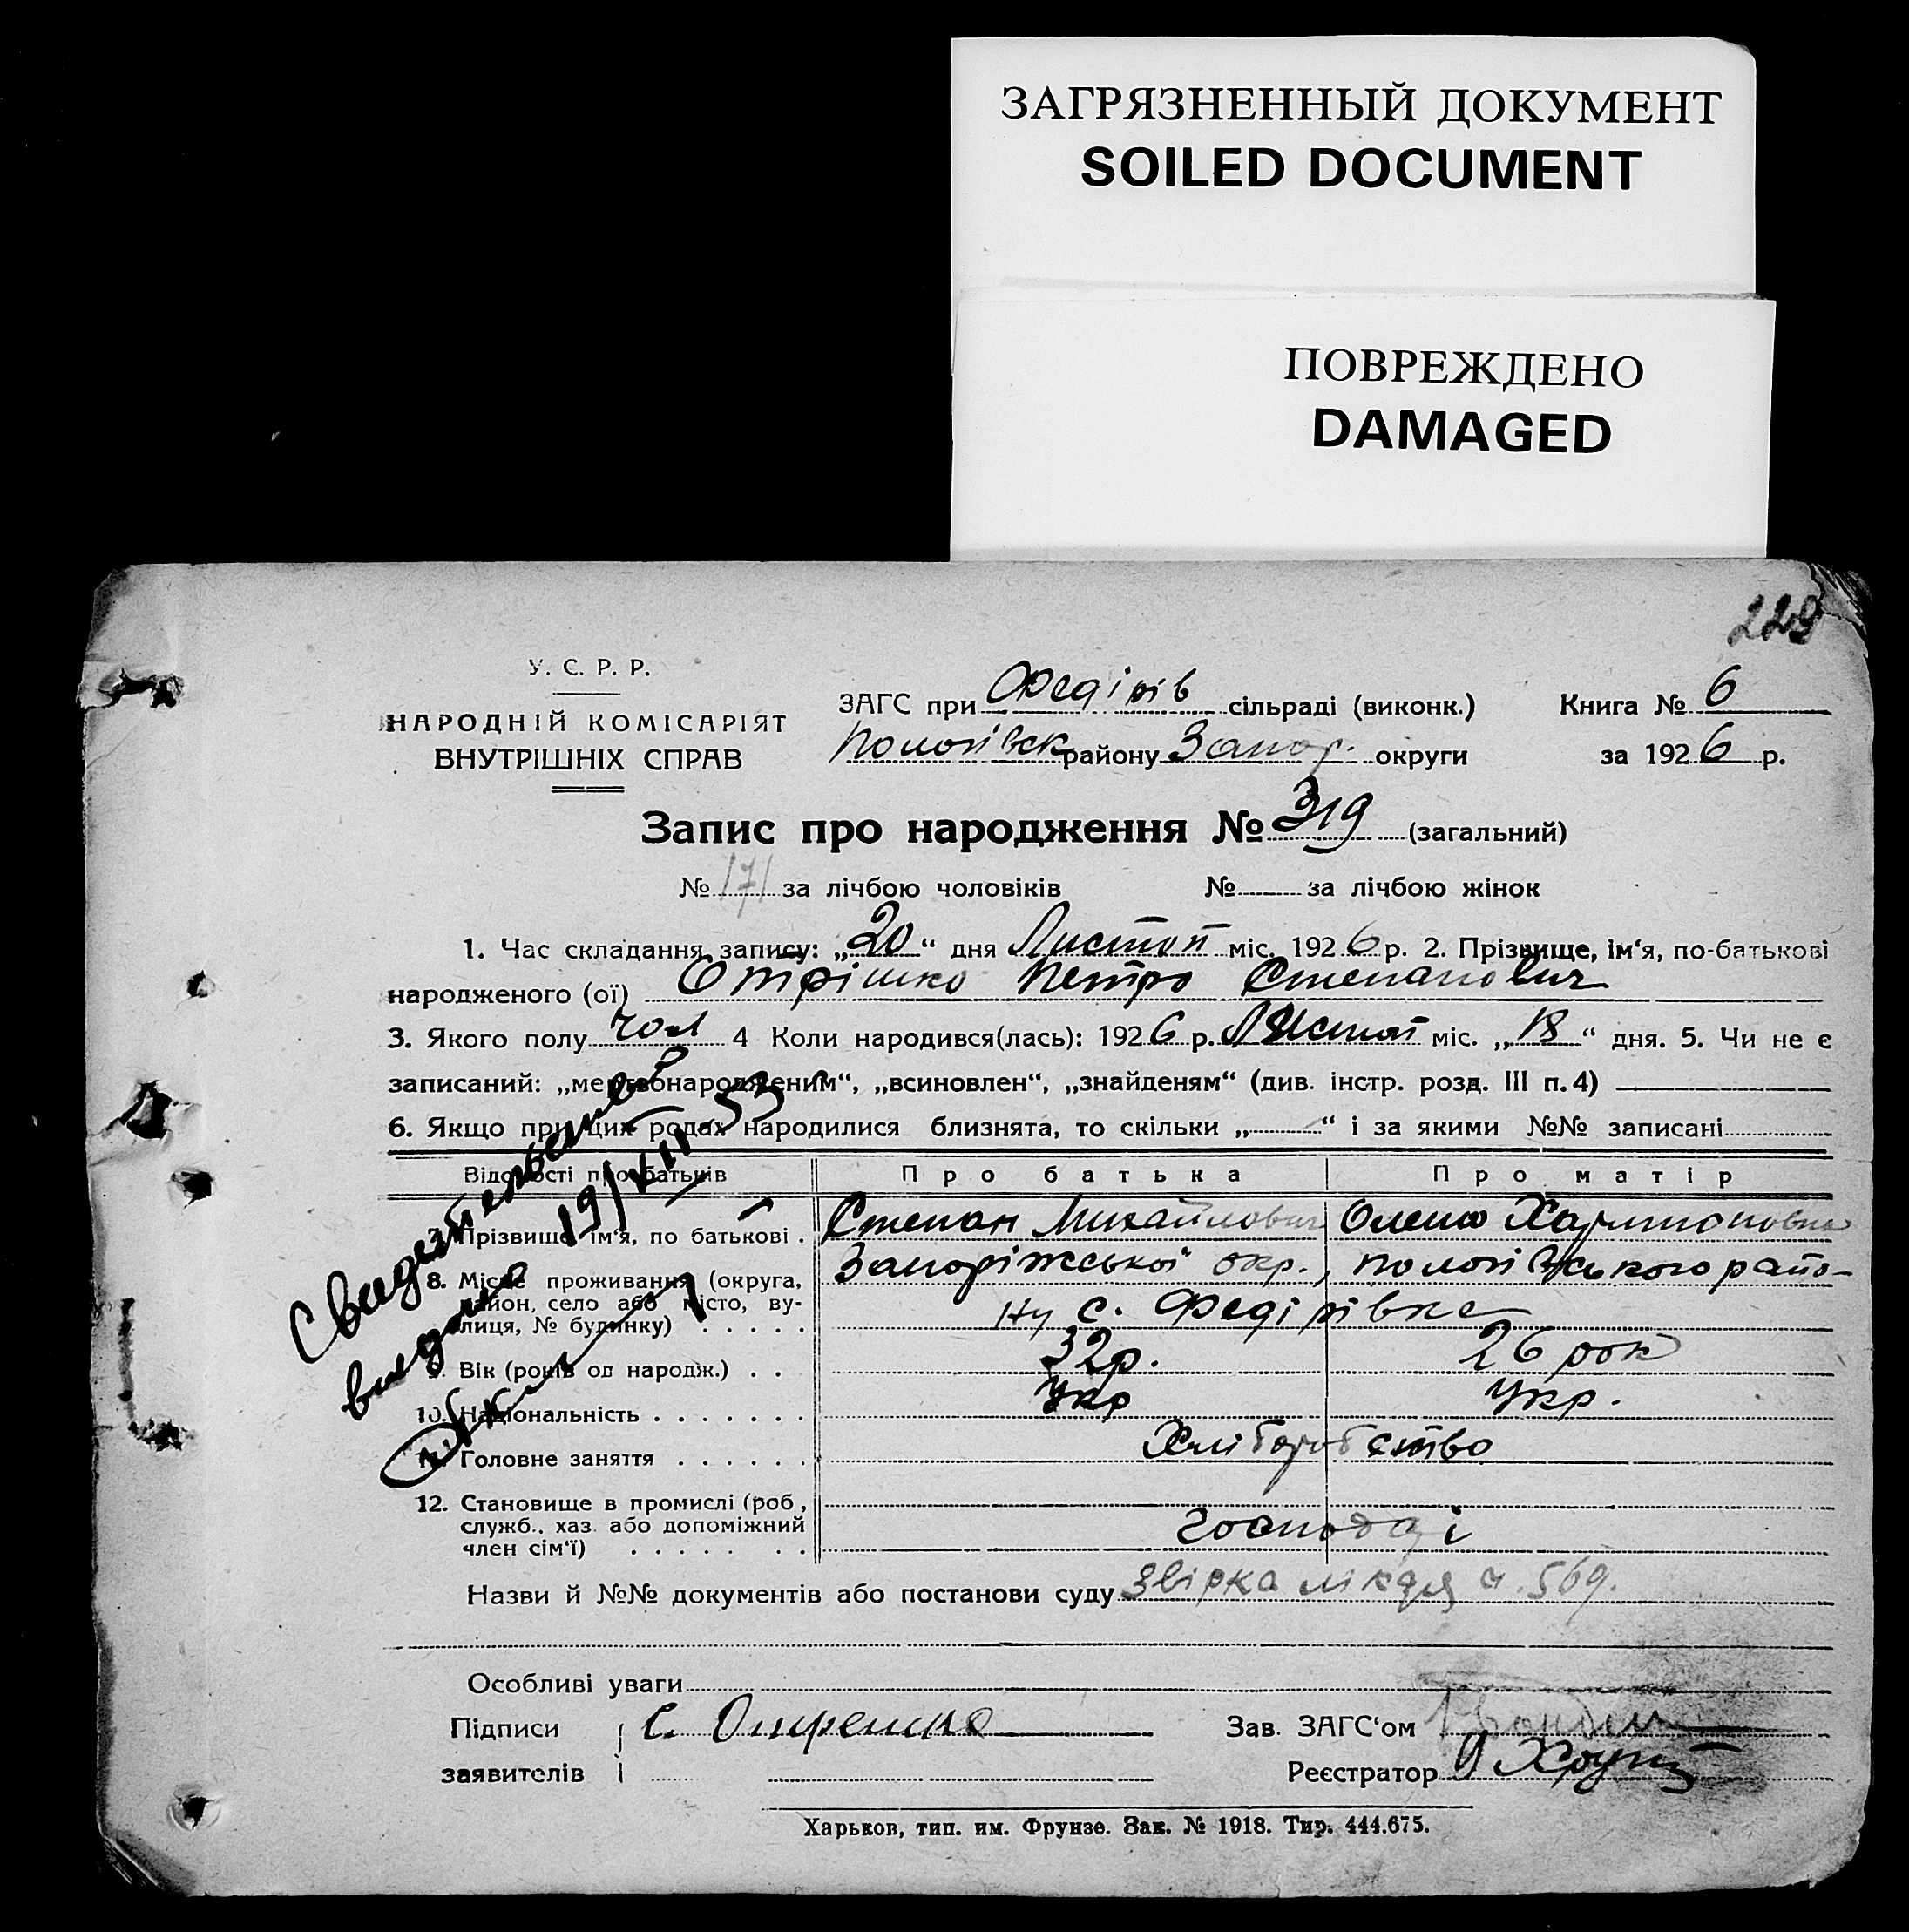 ЗАГРЯЗНЕННЫЙ ДОКУМЕНТ
SOILED DOCUMENT
ПОВРЕЖДЕНО
DAMAGED
229
У. С. Р. Р.
НАРОДНІЙ КОМІСАРІЯТ
ВНУТРІШНІХ СПРАВ
ЗАГС при Федірів сільраді (виконк.) Книга № 6
Пологівськ району Запор. округи за 1926 р.
Запис про народження № 319 (загальний)
№ 171 за лічбою чоловіків № за лічбою жінок
1. Час складання запису: „20“ дня Листоп міс. 1926 р. 2. Прізвище, ім‘я, по-батькові
народженого (ої) Отрішко Петро Степанович
3. Якого полу чол 4 Коли народився(лась): 1926 р. Листоп міс. „18“ дня. 5. Чи не є
записаний: „мертвонародженим“, „всиновлен“, „знайденям“ (див. інстр. розд. III п. 4)
6. Якщо при цих родах народилися близнята, то скільки „ “ і за якими №№ записані
Відомості про батьків Про батька Про матір
7. Прізвище, ім‘я, по батькові . Степан Михайлович Олена Харитоновна
8. Місце проживання (округа, Запоріжської окр., Пологівського райо-
район, село або місто, ву- ну с. Федірівка
лиця, № будинку) . . . . .
9. Вік (років од народж.) . . 32 р. 26 рок
10. Національність . . . . . . . Укр Укр.
11. Головне заняття . . . . . . Хліборобство
12. Становище в промислі (роб.,
служб., хаз. або допоміжний господарі
член сім‘ї) . . . . . . .
Свидетельство
выдано 19/XII-53 г
Назви й №№ документів або постанови суду Звірка лікаря ч. 569.
Особливі уваги
Підписи С. Отрешко Зав. ЗАГС‘ом
заявителів Реєстратор
Харьков, тип. им. Фрунзе. Зак. № 1918. Тир. 444.675.